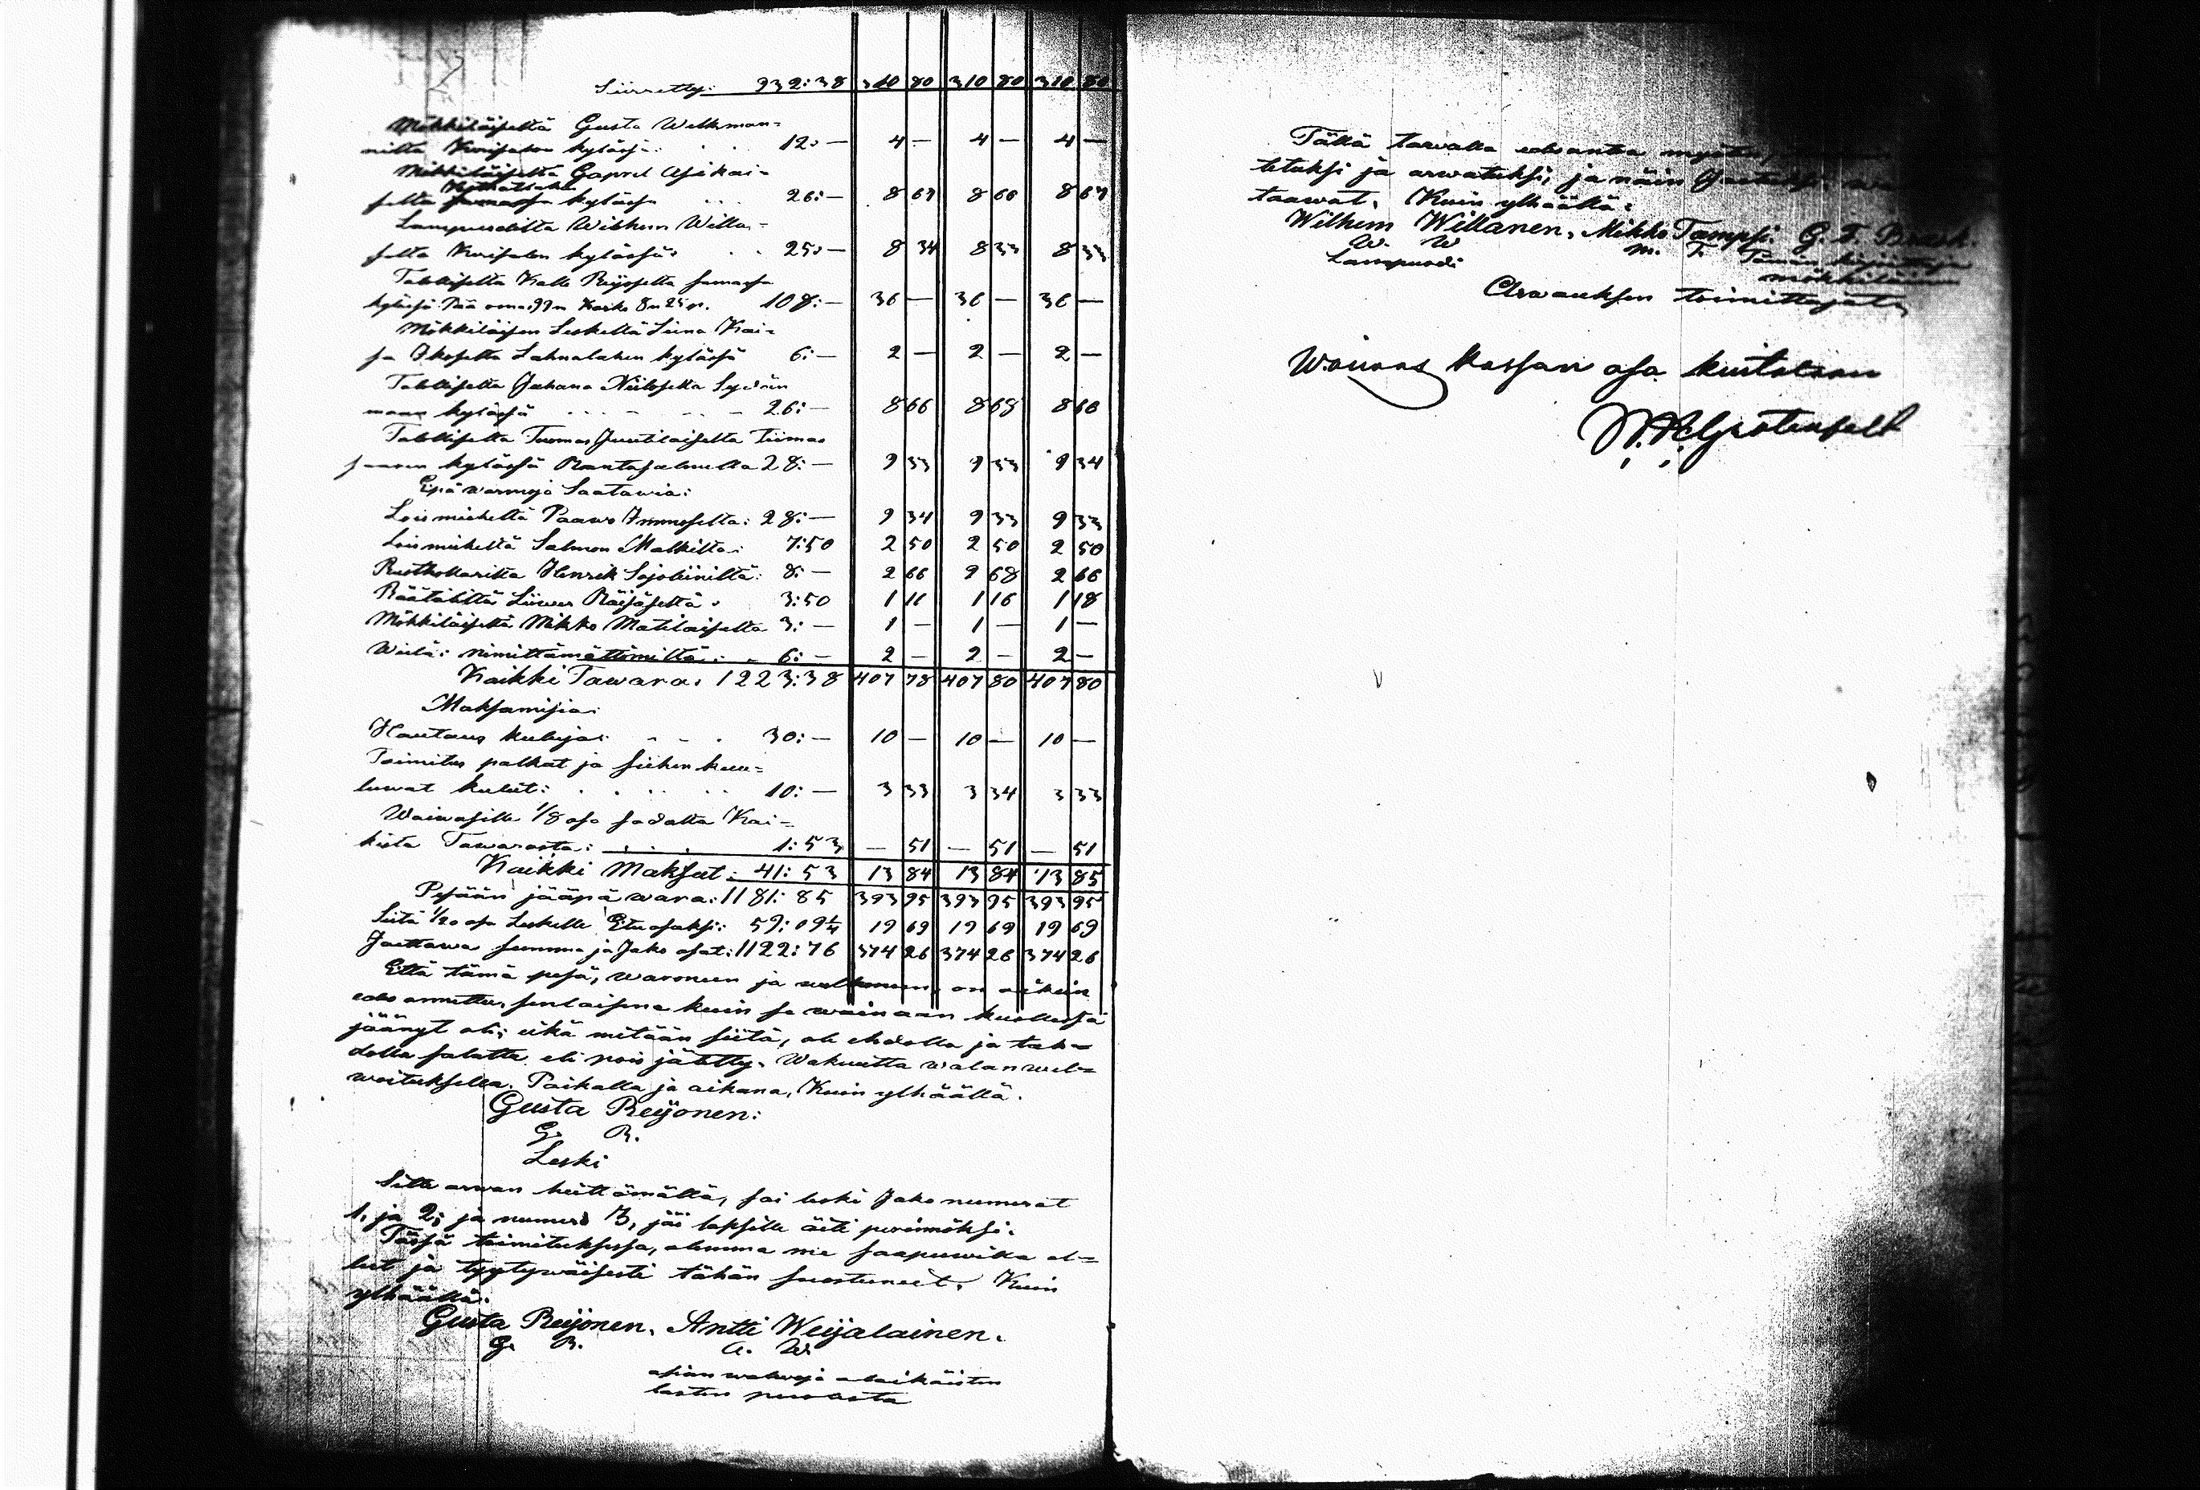 Siirretty: 932:38 310 80 310 80 310 80
Mökkiläiseltä Gusta Wellman-
nilta Kurisalon kylässä: 12:— 4 — 4 — 4 —
Mökkiläiseltä Gaprel Asikai-
selta kylässä 26:— 8 67 8 66 8 67
Lampuodilta Wilhem Willa-
selta Kurisalon kylässä: 25:— 8 34 8 33 8 33
Talolliselta Kalle Reijoselta samassa
kylässä 108:— 36 — 36 — 36 —
Mökkiläisen Leskeltä Liena Kai-
sa Ikoselta Lahnalahen kylässä 6:— 2 — 2 — 2 —
Talolliselta Juhana Niiloselta Sydän
maan kylässä 26:— 8 66 8 68 8 66
Talolliselta Tuomas Juutilaiselta Tiimas
saaren kylässä Rantasalmella 28:— 9 33 9 33 9 34
Epä warmoja Saatawia:
Loismieheltä Paawo Immoselta: 28:— 9 34 9 33 9 33
Loismieheltä Salmon Malkilta: 7:50 2 50 2 50 2 50
Rusthollarilta Henrik Sajoliiniltä: 8:— 2 66 2 68 2 66
Räätäliltä Räisäseltä: 3:50 1 16 1 16 1 18
Mökkiläiseltä Mikko Matilaiselta 3:— 1 — 1 — 1 —
Wielä: nimittämättömiltä: 6:— 2 — 2 — 2 —
Kaikki Tawara: 1223:38 407 78 407 80 407 80
Maksamisia:
Hautaus kuluja: 30:— 10 — 10 — 10 —
Toimitus palkat ja siihen kuu-
luwat kulut: 10:— 3 33 3 34 3 33
Waiwasille 1/8 osa sadalta Kai-
kista Tawarasta: 1:53 — 51 — 51 — 51
Kaikki Maksut: 41:53 13 84 13 84 13 85
Pesään jääpä wara: 1181:85 393 95 393 95 393 95
Siitä 1/20 osa Leskelle Etuosaksi: 59:09¼ 19 69 19 69 19 69
Jaettawa summa ja Jako osat: 1122:76 374 26 374 26 374 26
Että tämä pesä, waroneen ja welkoneen, on oikein
edes annettu, senlaisena kuin se wainaan kuollessa
jäänyt oli; eikä mitään siitä, ole ehdolla ja tah-
dolla salattu eli pois jätetty. Wakuutta walan wel-
woituksella. Paikalla ja aikana, Kuin ylhäällä.
Gusta Reijonen:
G. R.
Leski
Sitte arwan heittämällä, sai leski Jako numerot
1. ja 2; ja numero 3, jäi lapsille äiti perinnöksi.
Tässä toimituksessa, olemma me saapuwilla ol-
leet ja tyytywäisesti tähän suostuneet. Kuin
ylhäällä.
Gusta Reijonen. Antti Weijalainen.
G. R. A. W.
asian walwoja alaikäisten
lasten puolesta
Tällä tawalla edesantea myöten,
letuksi ja arwatuksi; ja näin Jaetuksi
taawat. Kuin ylhäällä:
Wilhem Willanen. Mikko Tampsi. G. F. Brask.
W. W. M. T. Tämän kirjoittaja
Lampuodi mökkiläinen
Arwauksen toimittajat.
Waiwas kassan osa kuitataan
Grotenfelt